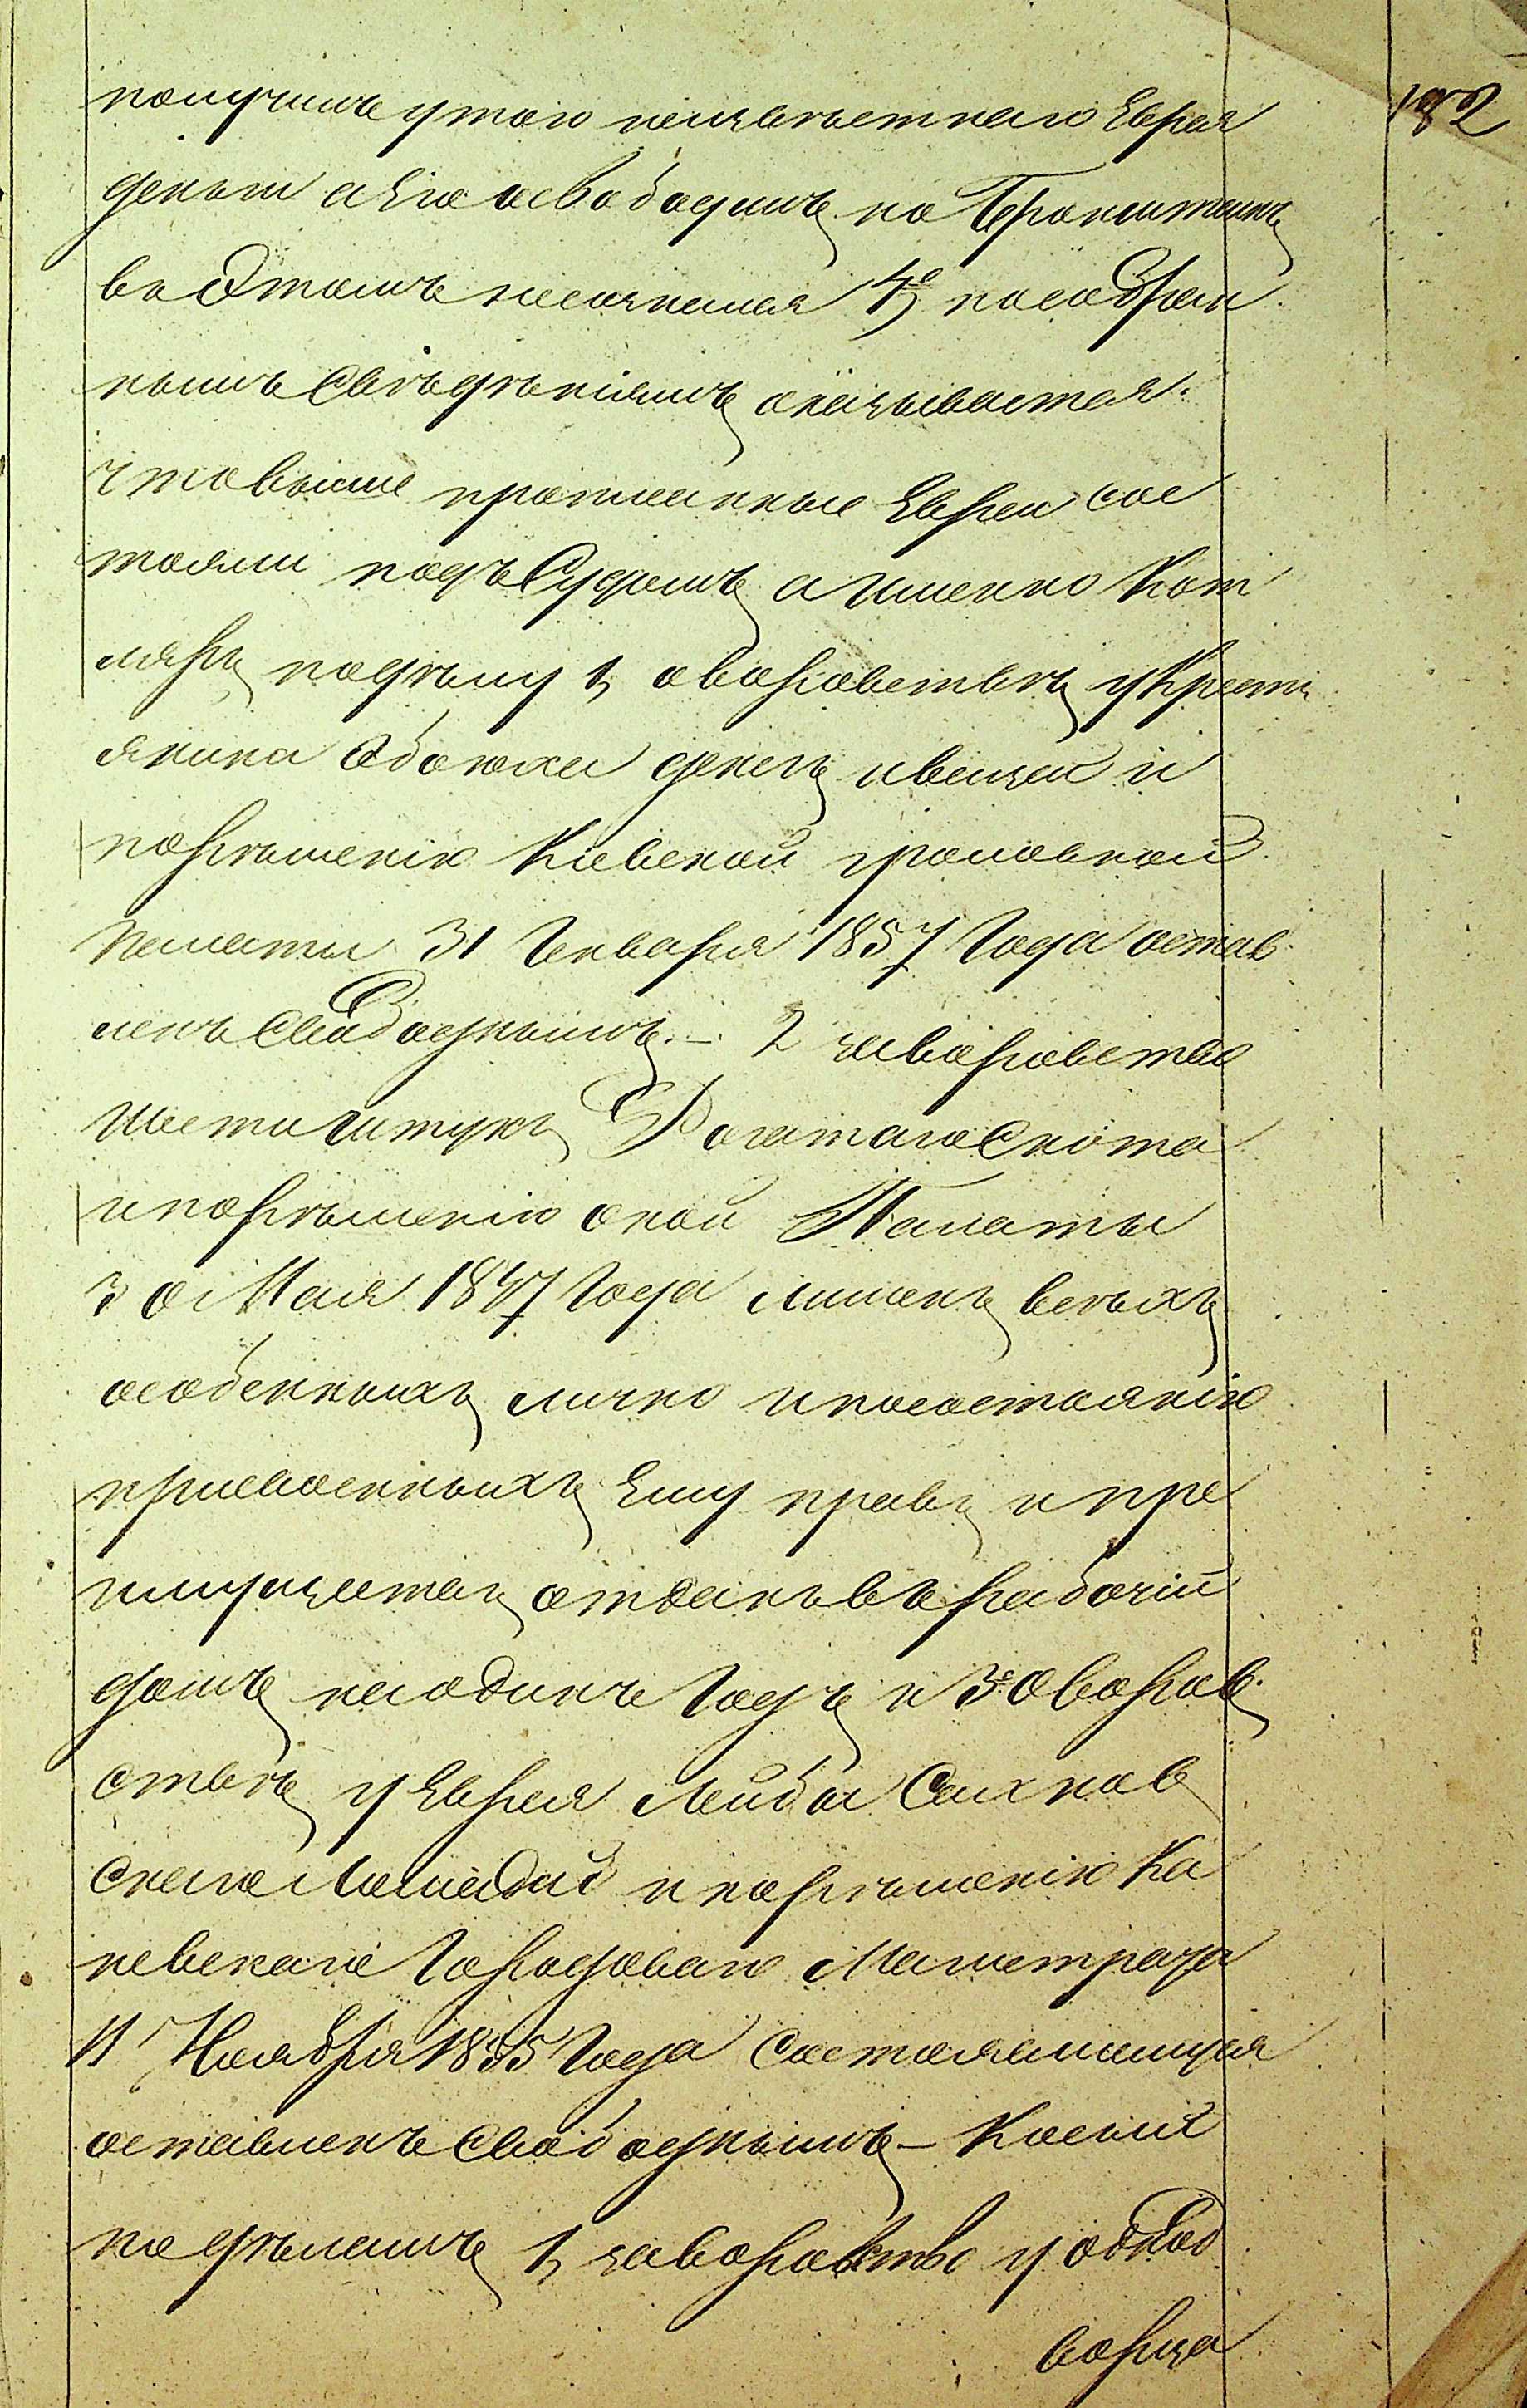 182
получить утого неизвестнаго Еврея
деньги аего освободить но Бронштейнъ
въ Этомъ несознался 4е пособран
нымъ Сведѣніямъ оказывается
чтовыше прописанные Евреи сос
тояли подъ Судомъ а именно Кот
ляръ подѣлу 1, оворовствѣ у Крестъ
янина денегъ ивещей и
порѣшенію Киевской уголовной
палаты 31 Января 1857 Года остав
ленъ Свободнымъ. — 2 заворовство
шести штукъ Рогатаго Скота
и порѣшенію оной Палаты
30 Мая 1847 Года лишенъ всѣхъ
особенныхъ лично и посостоянію
присвоенныхъ Ему правъ и пре
имуществъ отданъ въ рабочій
домъ наодинъ Годъ и 3е Оворов
ствѣ у Еврея Лейбы
Скаго Лошадей и порѣшенію Ка
невскаго Городоваго Магистрата
11 Ноября 1835 Года Состоявшимуся
оставленъ Свободнымъ —
по дѣламъ 1, заворовство у однод
ворца